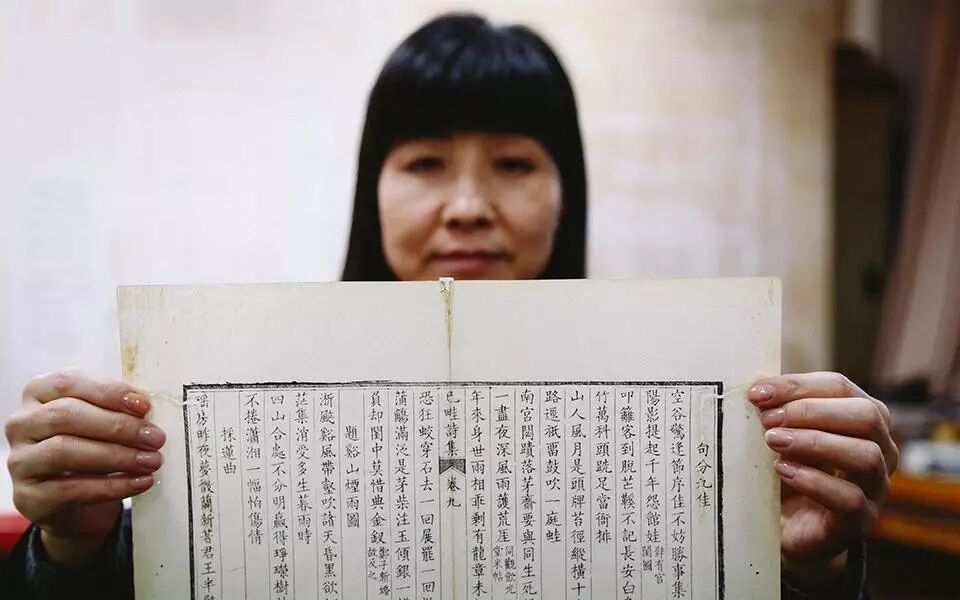 句分九佳
空谷驚逢節序佳不妨勝事集
陽影提起千年怨館娃
叩籬客到脫芒鞵不記長安白
竹萬科頭跣足當衙排
山人風月是頭牌苔徑縱橫十
路逕祇雷鼓吹一庭蛙
南宮闕蹟落茅齋要與同生死
一盡夜深風雨護荒厓
年來身世兩相乖剩有龍章未
已畦詩集 卷九
恐狂蛟穿石去一回展罷一回
蒲觴滿泛是茅柴注玉傾銀一
負却閨中莫惜典金釵鄭子新婚故反之
題谿山煙雨圖
浙颼谿風帶壑吹諸天昏黑欲
茫集消受多生暮雨時
四山合處不分明贏得琤璨樹
不捲瀟湘一幅怕傷情
採蓮曲
呼房昨夜夢微蘭新著君王半